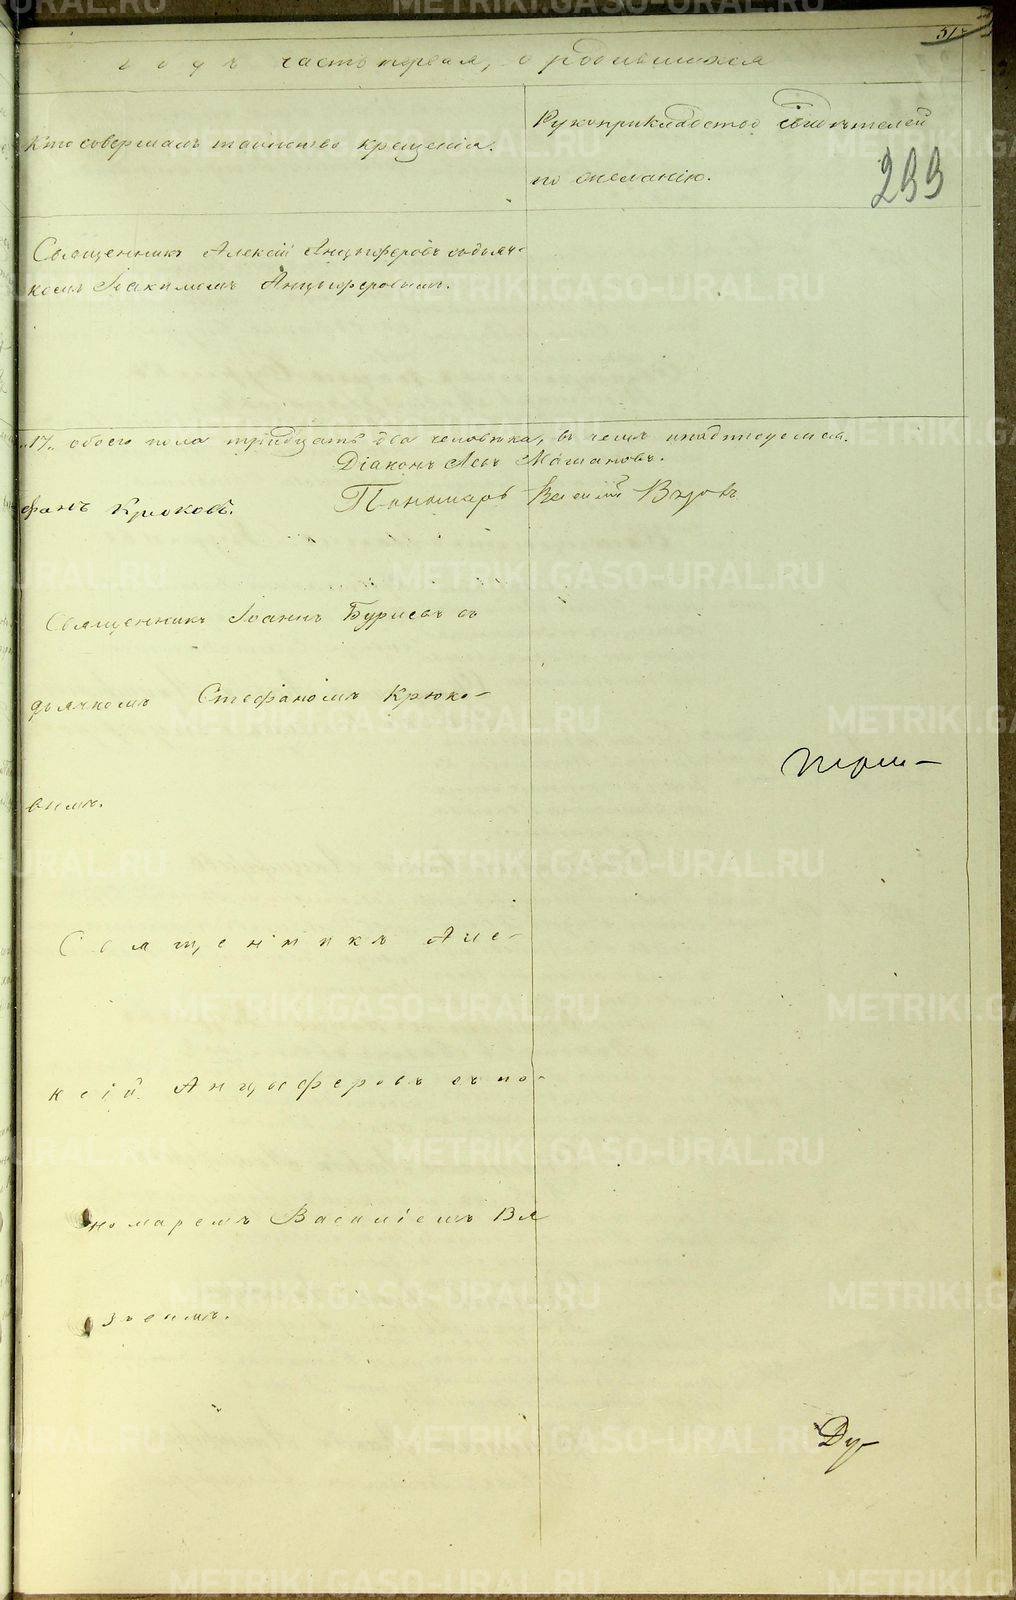 51
году часть первая, о родившихся
Кто совершалъ таинство крещенія.
Рукоприкладство свидѣтелей
по желанію.
299
Священникъ Алексій Анцыферовъ съ дьяч-
комъ Іоакимомъ Анцыферовымъ.
„17„ обоего пола тридцать два человѣка, въ чемъ и подписуемся.
Діаконъ Левъ
фанъ Крюковъ.
Пономарь Василій
Священникъ Іоаннъ съ
дьячкомъ Стефаномъ Крюко-
вымъ.
Священникъ Але-
ксій Анцыферовъ съ по-
номаремъ Василіемъ Вя
зовымъ.
Ду-
METRIKI.GASO-URAL.RU